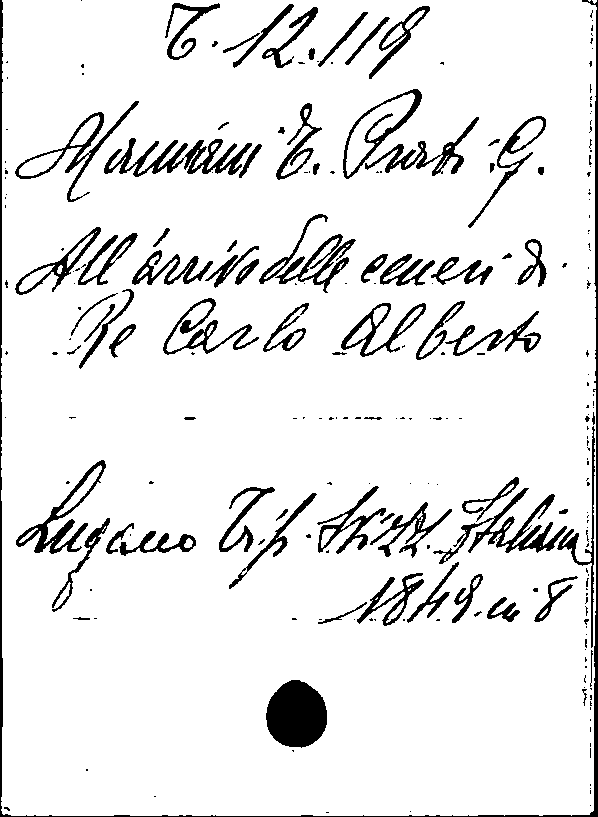 T. 12.119
Mamiani T. Prati G.
All'arrivo delle ceneri di
Re Carlo Alberto
Lugano Tip. Svizz. Italiana
1849. in 8